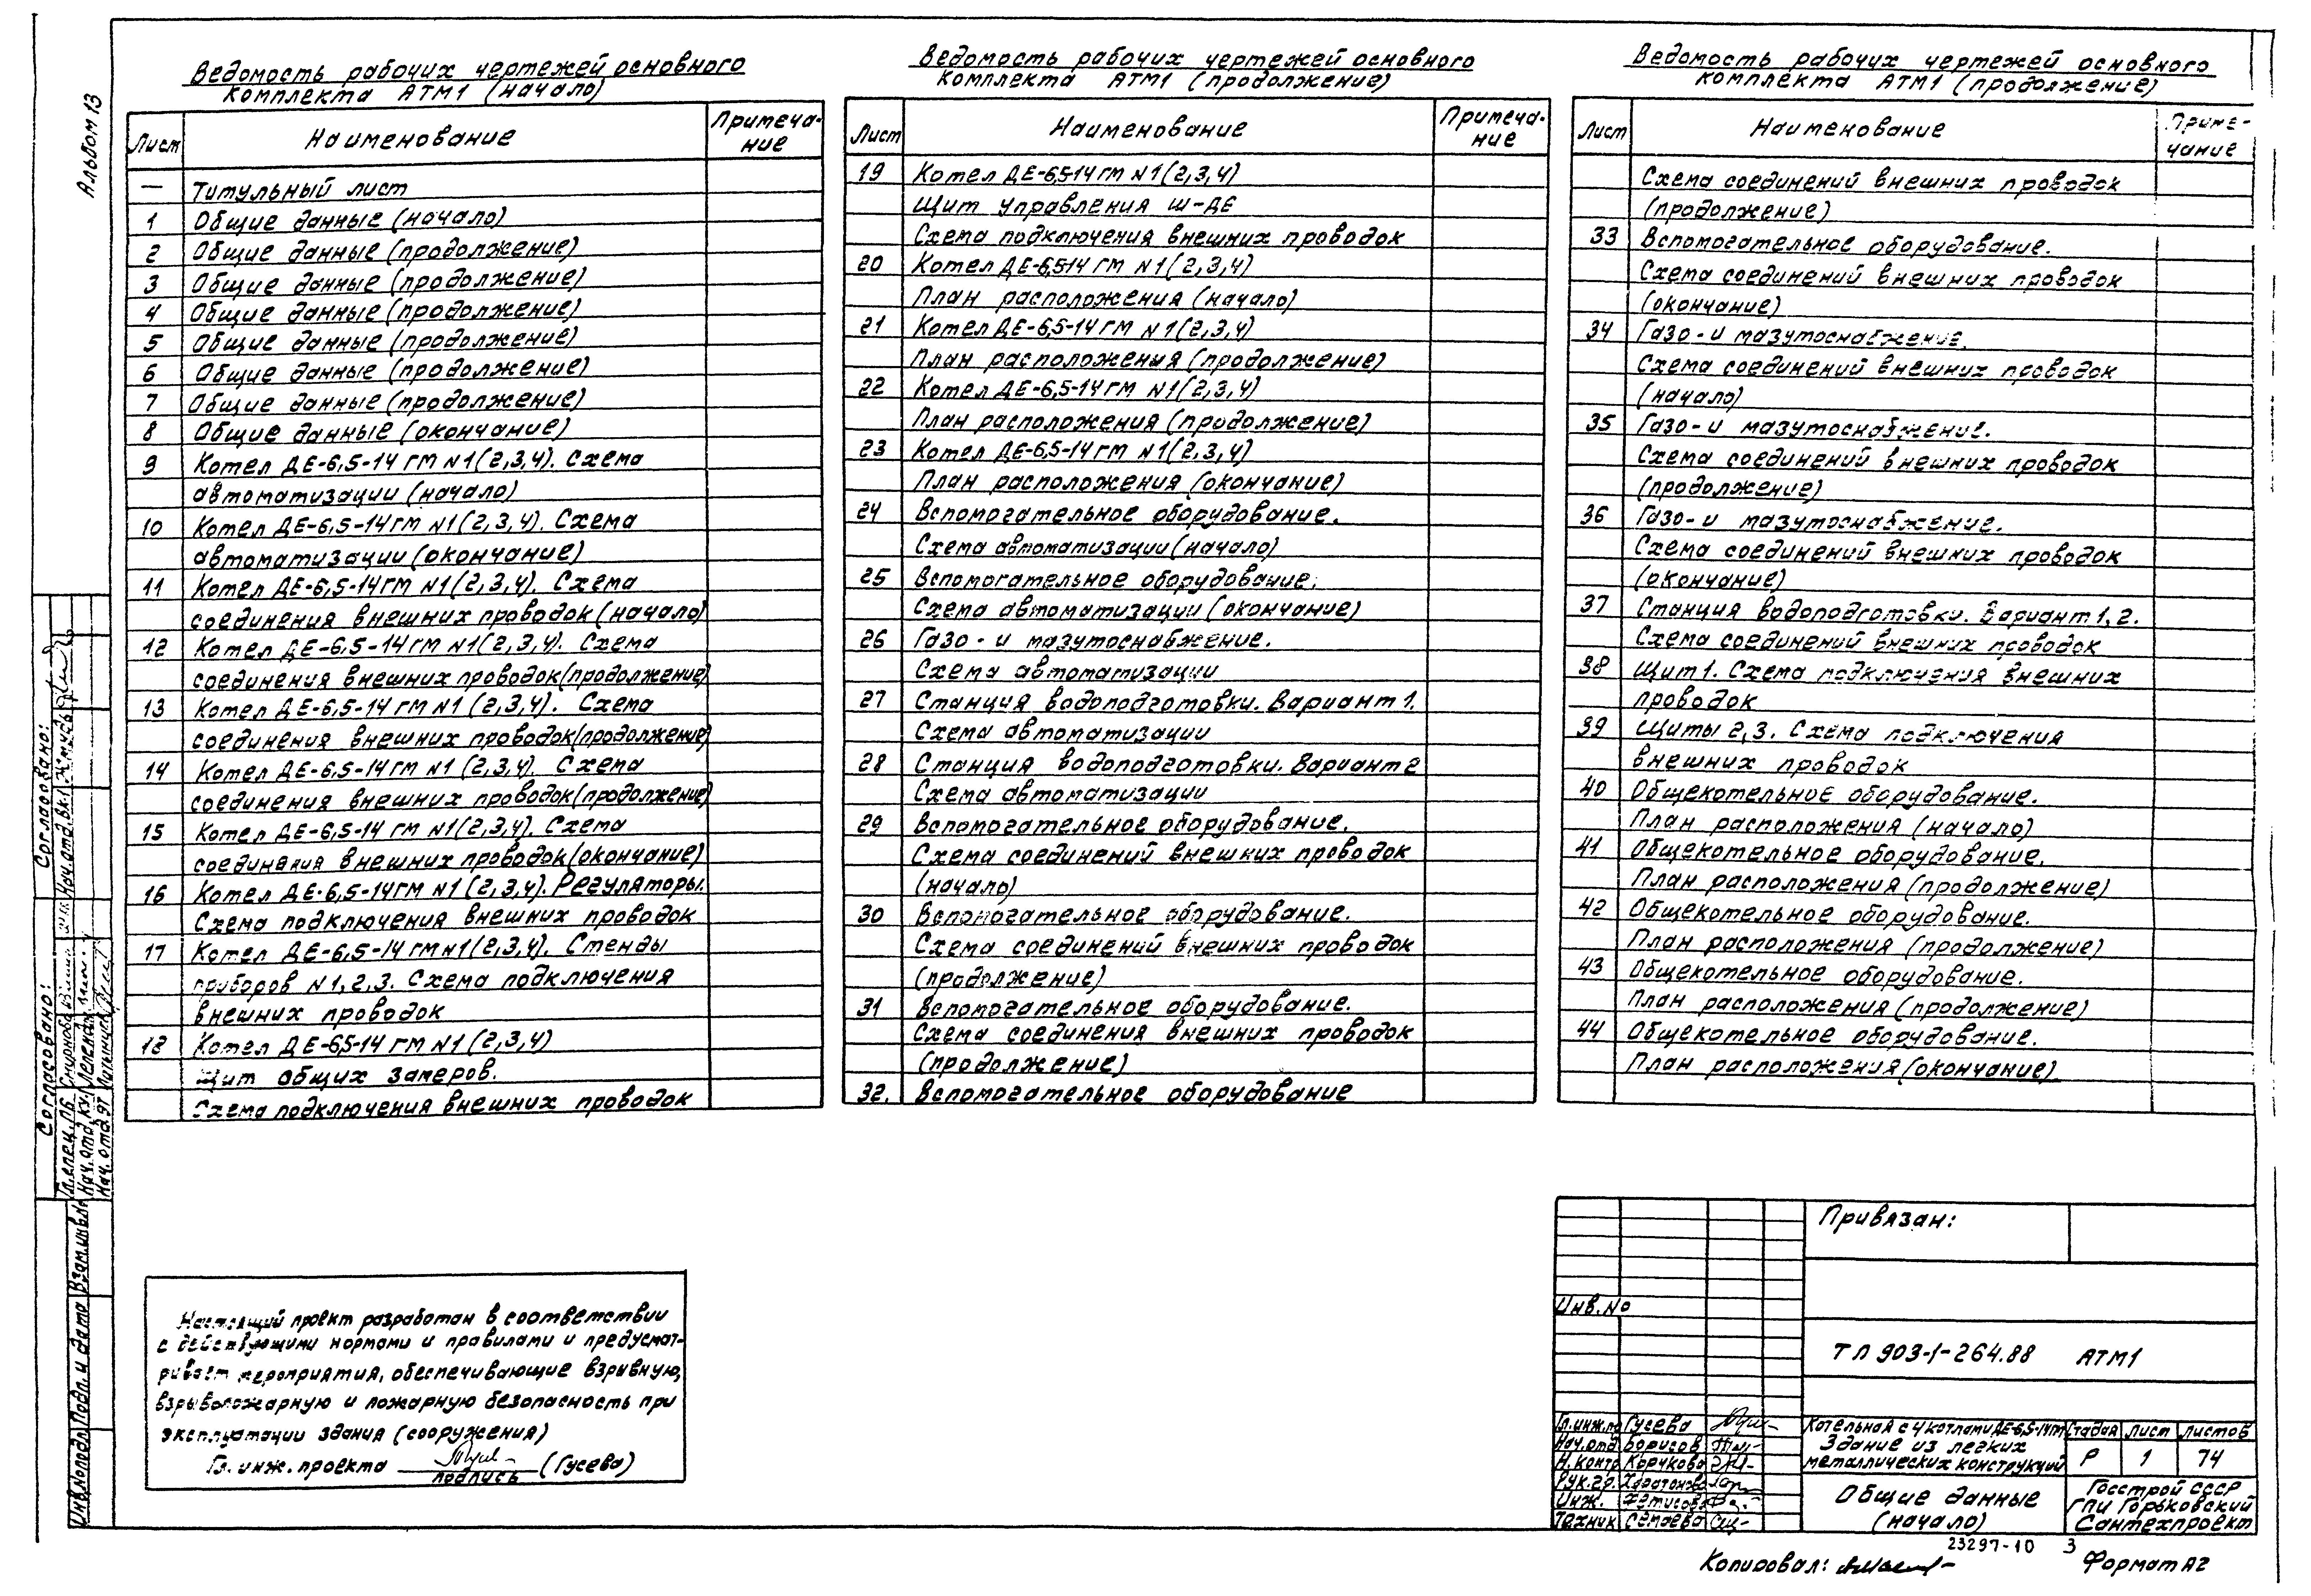 Альбом 13
Ведомость рабочих чертежей основного
комплекта АТМ1 (начало)
Лист Наименование Примеча-
ние
— Титульный лист
1 Общие данные (начало)
2 Общие данные (продолжение)
3 Общие данные (продолжение)
4 Общие данные (продолжение)
5 Общие данные (продолжение)
6 Общие данные (продолжение)
7 Общие данные (продолжение)
8 Общие данные (окончание)
9 Котел ДЕ-6,5-14 ГМ N1(2,3,4). Схема
автоматизации (начало)
10 Котел ДЕ-6,5-14ГМ N1(2,3,4). Схема
автоматизации (окончание)
11 Котел ДЕ-6,5-14ГМ N1(2,3,4). Схема
соединения внешних проводок (начало)
12 Котел ДЕ-6,5-14ГМ N1(2,3,4). Схема
соединения внешних проводок (продолжение)
13 Котел ДЕ-6,5-14 ГМ N1 (2,3,4). Схема
соединения внешних проводок (продолжение)
14 Котел ДЕ-6,5-14 ГМ N1 (2,3,4). Схема
соединения внешних проводок (продолжение)
15 Котел ДЕ-6,5-14 ГМ N1(2,3,4). Схема
соединения внешних проводок (окончание)
16 Котел ДЕ-6,5-14ГМ N1 (2,3,4). Регуляторы.
Схема подключения внешних проводок
17 Котел ДЕ-6,5-14 ГМ N1(2,3,4). Стенды
приборов N1,2,3. Схема подключения
внешних проводок
18 Котел ДЕ-6,5-14 ГМ N1 (2,3,4)
Щит общих замеров.
Схема подключения внешних проводок
Ведомость рабочих чертежей основного
комплекта АТМ1 (продолжение)
Лист Наименование Примеча-
ние
19 Котел ДЕ-6,5-14 ГМ N1(2,3,4)
Щит управления Щ-ДЕ
Схема подключения внешних проводок
20 Котел ДЕ-6,5-14 ГМ N1(2,3,4)
План расположения (начало)
21 Котел ДЕ-6,5-14 ГМ N1(2,3,4)
План расположения (продолжение)
22 Котел ДЕ-6,5-14ГМ N1(2,3,4)
План расположения (продолжение)
23 Котел ДЕ-6,5-14 ГМ N1(2,3,4)
План расположения (окончание)
24 Вспомогательное оборудование.
Схема автоматизации (начало)
25 Вспомогательное оборудование.
Схема автоматизации (окончание)
26 Газо - и мазутоснабжение.
Схема автоматизации
27 Станция водоподготовки. Вариант 1.
Схема автоматизации
28 Станция водоподготовки. Вариант 2
Схема автоматизации
29 Вспомогательное оборудование.
Схема соединений внешних проводок
(начало)
30 Вспомогательное оборудование.
Схема соединений внешних проводок
(продолжение)
31 Вспомогательное оборудование.
Схема соединения внешних проводок
(продолжение)
32. Вспомогательное оборудование
Ведомость рабочих чертежей основного
комплекта АТМ1 (продолжение)
Лист Наименование Приме-
чание
Схема соединений внешних проводок
(продолжение)
33 Вспомогательное оборудование.
Схема соединений внешних проводок
(окончание)
34 Газо - и мазутоснабжение.
Схема соединений внешних проводок
(начало)
35 Газо - и мазутоснабжение.
Схема соединений внешних проводок
(продолжение)
36 Газо - и мазутоснабжение.
Схема соединений внешних проводок
(окончание)
37 Станция водоподготовки. Вариант 1, 2.
Схема соединений внешних проводок
38 Щит 1. Схема подключения внешних
проводок
39 Щиты 2,3. Схема подключения
внешних проводок
40 Общекотельное оборудование.
План расположения (начало)
41 Общекотельное оборудование.
План расположения (продолжение)
42 Общекотельное оборудование.
План расположения (продолжение)
43 Общекотельное оборудование.
План расположения (продолжение)
44 Общекотельное оборудование.
План расположения (окончание)
Согласовано:
Нач.отд.ВК1
Согласовано:
Гл.спец.ПБ Смирнова
Нач.отд.
Нач.отд.
Взам.инв.№
Подп. и дата
Инв.№подл
Настоящий проект разработан в соответствии
с действующими нормами и правилами и предусмат-
ривает мероприятия, обеспечивающие взрывную,
взрывопожарную и пожарную безопасность при
эксплуатации здания (сооружения)
Гл. инж. проекта (Гусева)
подпись
Привязан:
Инв. №
ТП 903-1-264.88 АТМ1
Гл.инж.пр Гусева
Нач.отд Борисов
Н.контр Корчкова
Рук.гр.
Инж. Фетисова
Техник Семаева
Котельная с 4 котлами ДЕ-6,5-14ГМ
Здание из легких
металлических конструкций
Стадия Лист Листов
Р 1 74
Общие данные
(начало)
Госстрой СССР
ГПИ Горьковский
Сантехпроект
23297-10 3
Копировал: Формат А2